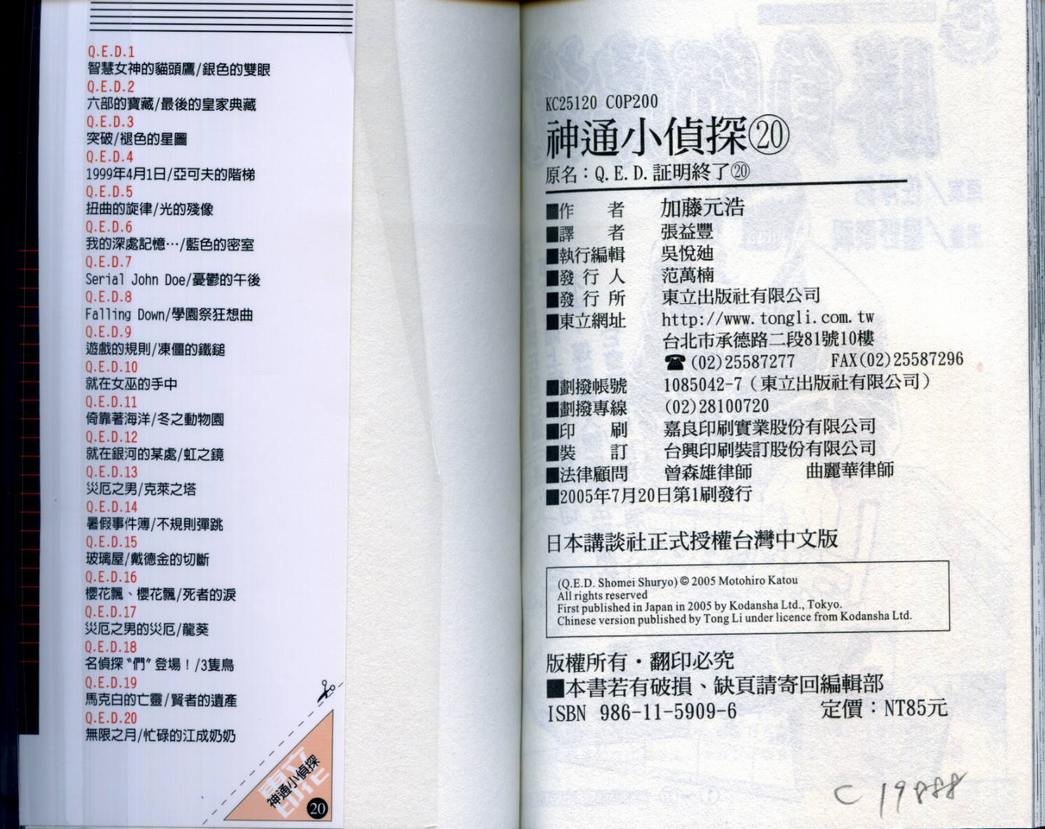 Q.E.D.1
智慧女神的貓頭鷹/銀色的雙眼
Q.E.D.2
六部的寶藏/最後的皇家典藏
Q.E.D.3
突破/褪色的星圖
Q.E.D.4
1999年4月1日/亞可夫的階梯
Q.E.D.5
扭曲的旋律/光的殘像
Q.E.D.6
我的深處記憶…/藍色的密室
Q.E.D.7
Serial John Doe/憂鬱的午後
Q.E.D.8
Falling Down/學園祭狂想曲
Q.E.D.9
遊戲的規則/凍僵的鐵鎚
Q.E.D.10
就在女巫的手中
Q.E.D.11
倚靠著海洋/冬之動物園
Q.E.D.12
就在銀河的某處/虹之鏡
Q.E.D.13
災厄之男/克萊之塔
Q.E.D.14
暑假事件簿/不規則彈跳
Q.E.D.15
玻璃屋/戴德金的切斷
Q.E.D.16
櫻花飄、櫻花飄/死者的淚
Q.E.D.17
災厄之男的災厄/龍葵
Q.E.D.18
名偵探〝們〞登場！/3隻鳥
Q.E.D.19
馬克白的亡靈/賢者的遺產
Q.E.D.20
無限之月/忙碌的江成奶奶
神通小偵探
20
KC25120 C0P200
神通小偵探⑳
原名：Q.E.D.証明終了⑳
■作　者　加藤元浩
■譯　者　張益豐
■執行編輯　吳悅廸
■發 行 人　范萬楠
■發 行 所　東立出版社有限公司
■東立網址　http://www.tongli.com.tw
台北市承德路二段81號10樓
☎(02)25587277　FAX(02)25587296
■劃撥帳號　1085042-7（東立出版社有限公司）
■劃撥專線　(02)28100720
■印　刷　嘉良印刷實業股份有限公司
■裝　訂　台興印刷裝訂股份有限公司
■法律顧問　曾森雄律師　曲麗華律師
■2005年7月20日第1刷發行
日本講談社正式授權台灣中文版
(Q.E.D. Shomei Shuryo) © 2005 Motohiro Katou
All rights reserved
First published in Japan in 2005 by Kodansha Ltd., Tokyo.
Chinese version published by Tong Li under licence from Kodansha Ltd.
版權所有・翻印必究
■本書若有破損、缺頁請寄回編輯部
ISBN 986-11-5909-6　定價：NT85元
C 19888